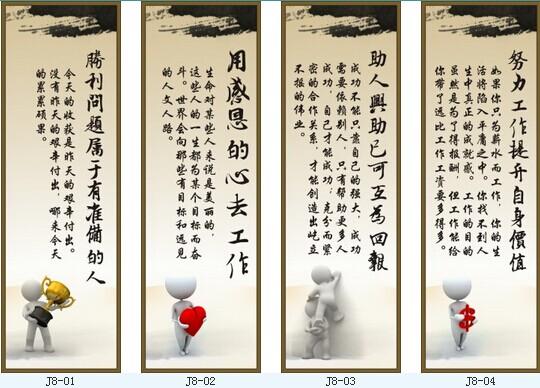 勝利問題属于有准備的人
今天的收获是昨天的艰辛付出。
没有昨天的艰辛付出，哪来今天
的累累硕果。
J8-01
用感恩的心去工作
生命对某些人来说是美丽的，
这些人的一生都为某个目标而奋
斗。世界会向那些有目标和远见
的人文人路。
J8-02
助人興助已可互為回報
成功不能只靠自己的强大，成功
需要依赖别人，只有帮助更多人
成功，自己才能成功，充分而紧
密的合作关系，才能创造出屹立
不摇的伟业。
J8-03
努力工作提升自身價值
如果你只为薪水而工作，你的生
活将陷入平庸之中。你找不到人
生中真正的成就感。工作的目的
虽然是为了得报酬，但工作能给
你带了远比工作工资要多得多。
J8-04